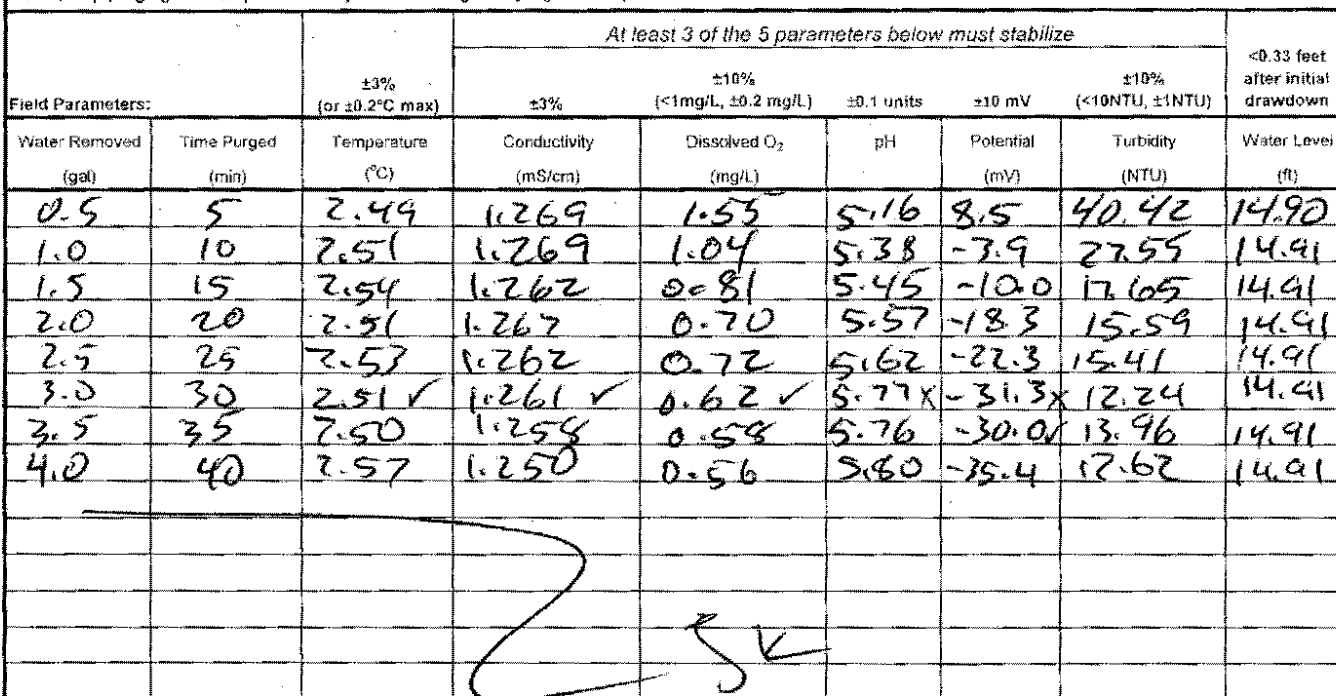 At least 3 of the 5 parameters below must stabilize
Field Parameters: ±3% (or ±0.2°C max) ±3% ±10% (<1mg/L, ±0.2 mg/L) ±0.1 units ±10 mV ±10% (<10NTU, ±1NTU) <0.33 feet after initial drawdown
Water Removed Time Purged Temperature Conductivity Dissolved O₂ pH Potential Turbidity Water Level
(gal) (min) (°C) (mS/cm) (mg/L) (mV) (NTU) (ft)
0.5 5 2.49 1.269 1.55 5.16 8.5 40.42 14.90
1.0 10 2.51 1.269 1.04 5.38 -3.9 27.55 14.91
1.5 15 2.54 1.262 0.81 5.45 -10.0 17.65 14.91
2.0 20 2.51 1.267 0.70 5.57 -18.3 15.59 14.91
2.5 25 2.53 1.262 0.72 5.62 -22.3 15.41 14.91
3.0 30 2.51 ✓ 1.261 ✓ 0.62 ✓ 5.77 x -31.3 x 12.24 14.91
3.5 35 2.50 1.258 0.58 5.76 -30.0 ✓ 13.96 14.91
4.0 40 2.57 1.250 0.56 5.80 -35.4 12.62 14.91